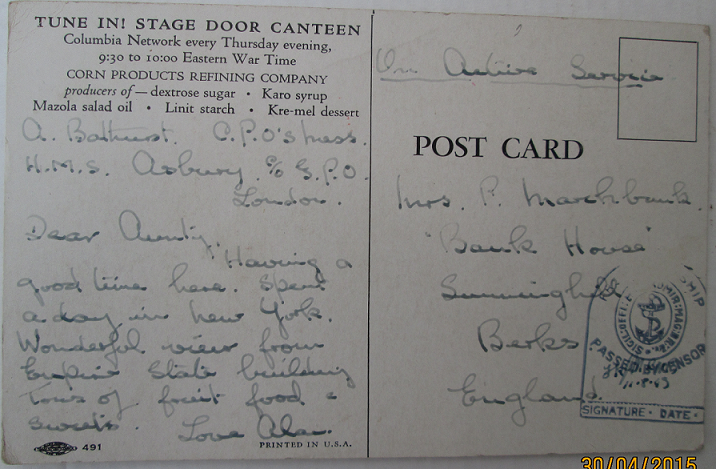 TUNE IN! STAGE DOOR CANTEEN
Columbia Network every Thursday evening,
9:30 to 10:00 Eastern War Time
CORN PRODUCTS REFINING COMPANY
producers of — dextrose sugar • Karo syrup
Mazola salad oil • Linit starch • Kre-mel dessert
A. Bathurst. C.P.O's Mess.
H.M.S. Asbury. c/o G.P.O.
London.
Dear Aunty,
Having a
good time here. Spent
a day in New York.
Wonderful view from
Empire State building
Tons of fruit food &
sweets. Love Alan.
491
PRINTED IN U.S.A.
On Active Service
POST CARD
Mrs. P. Marchbank.
"Bank House"
Sunninghill
Berks.
England.
SHIP
PASSED BY CENSOR
SIGNATURE · DATE ·
30/04/2015